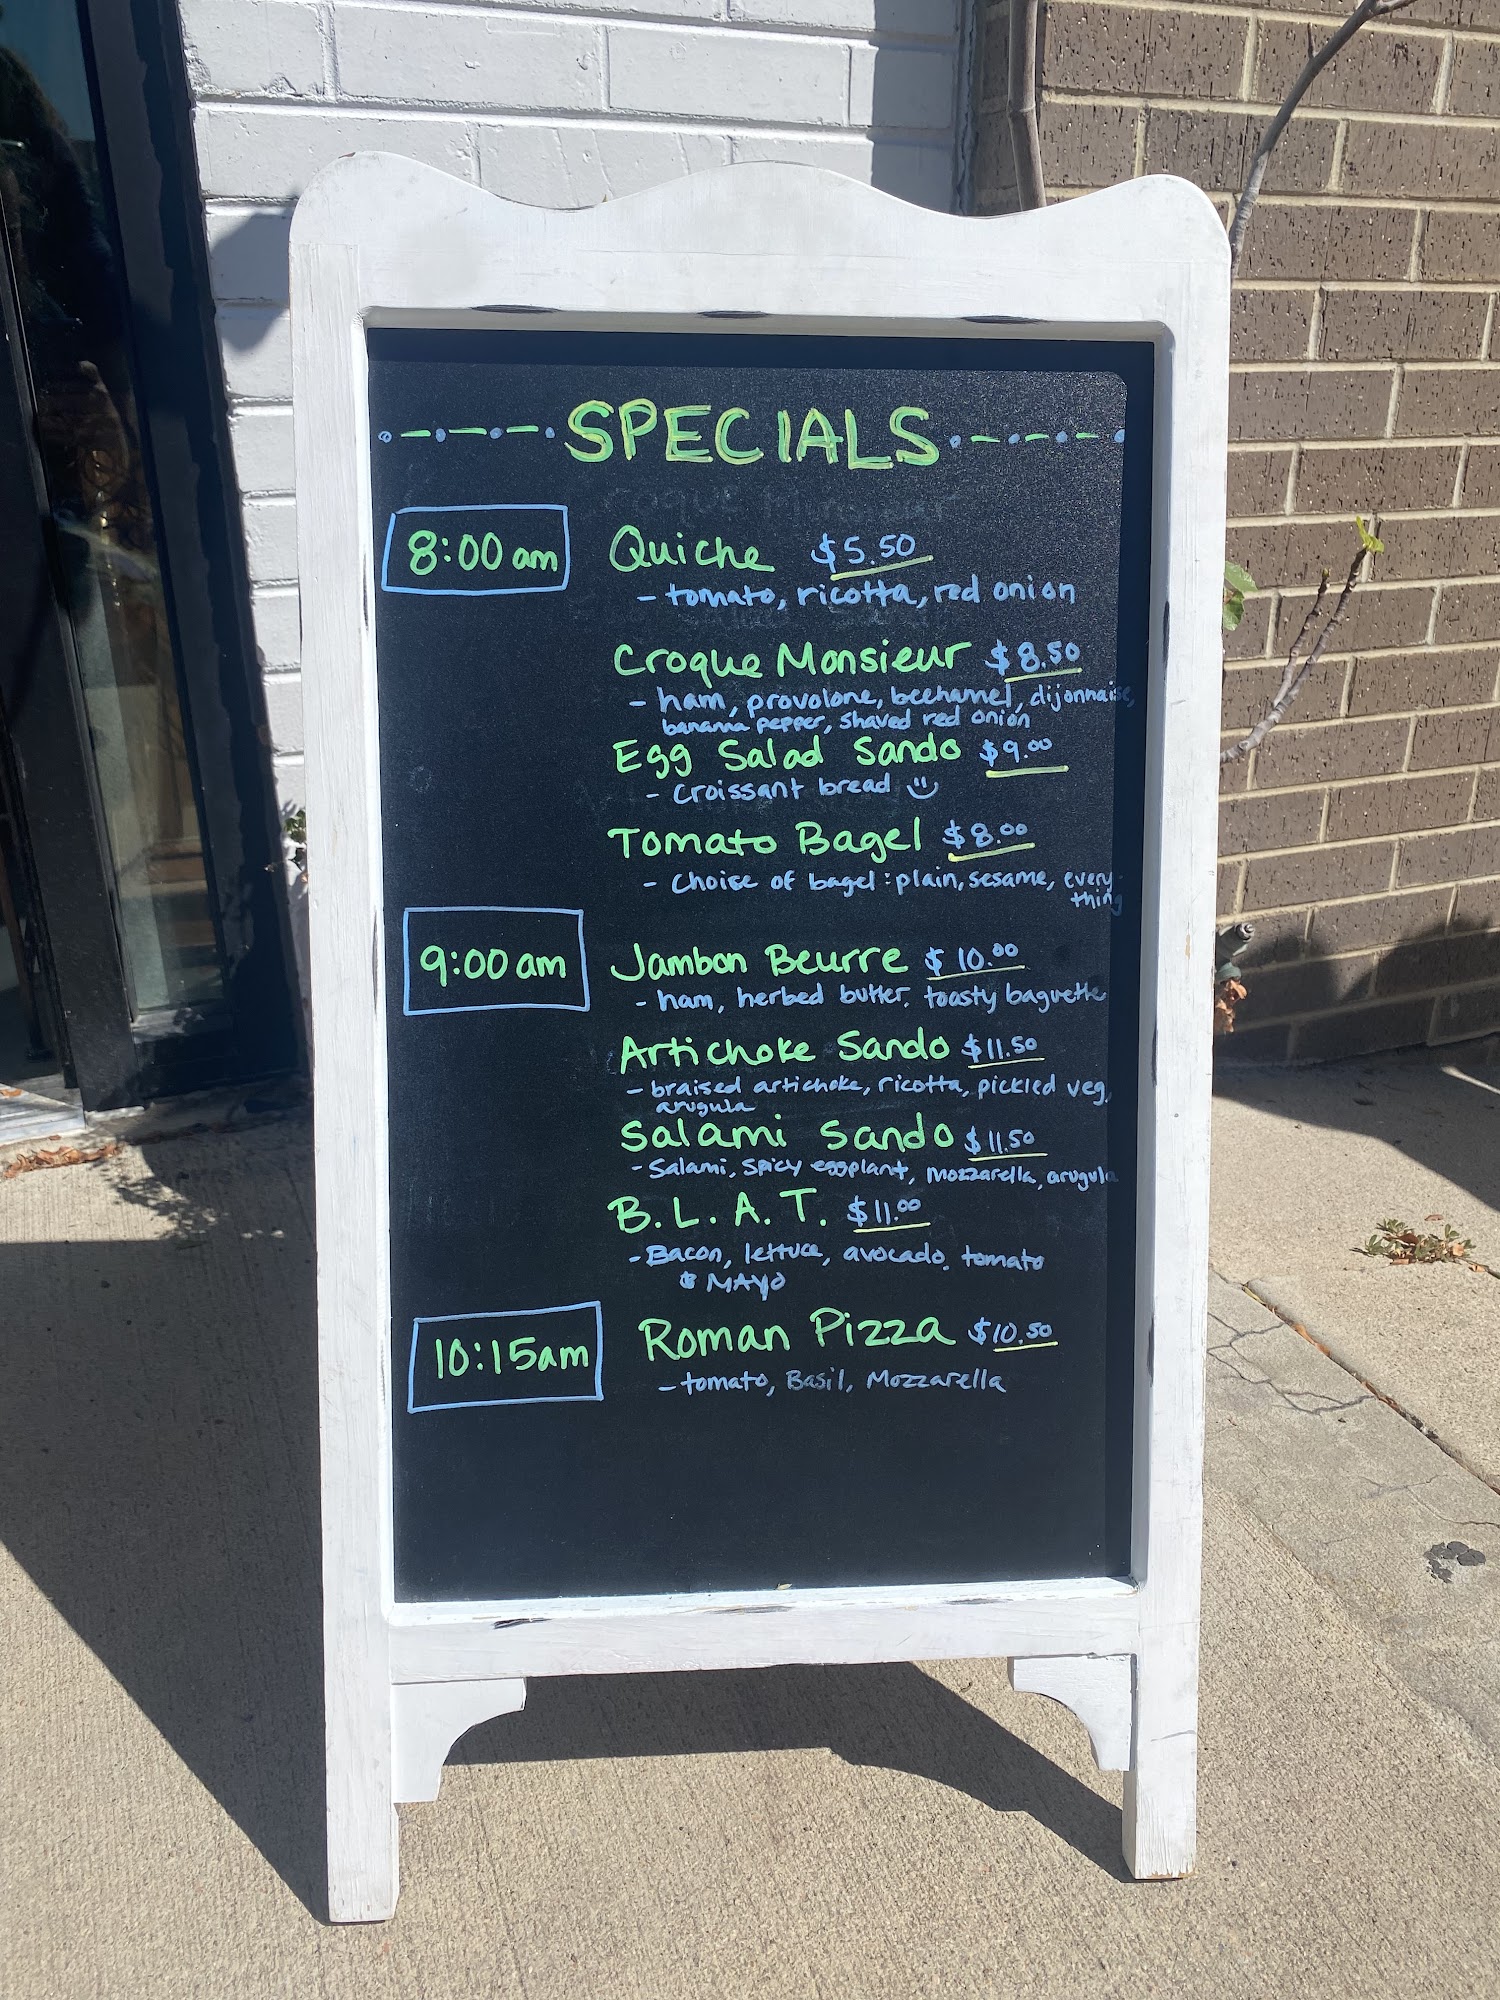 SPECIALS
8:00 am
Quiche $5.50
- tomato, ricotta, red onion
Croque Monsieur $8.50
- ham, provolone, bechamel, dijonnaise,
banana pepper, shaved red onion
Egg Salad Sando $9.00
- Croissant bread
Tomato Bagel $8.00
- Choise of bagel: plain, sesame, every-
thing
9:00 am
Jambon Beurre $10.00
- ham, herbed butter, toasty baguette
Artichoke Sando $11.50
- braised artichoke, ricotta, pickled veg,
arugula
Salami Sando $11.50
- Salami, spicy eggplant, mozzarella, arugula
B.L.A.T. $11.00
- Bacon, lettuce, avocado, tomato
& MAYO
10:15am
Roman Pizza $10.50
- tomato, Basil, Mozzarella